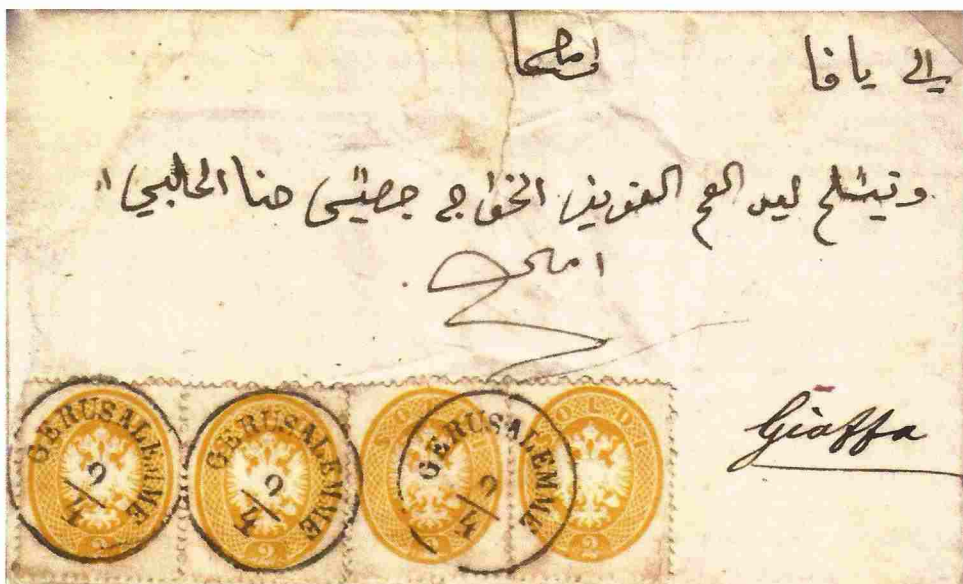 إلى يافا
وتسلم ليد العم العزيز الخواجه حنا الحلبي
Giaffa
GERUSALEMME 9/4
GERUSALEMME 9/4
GERUSALEMME 9/4
2
2
SOLDI 2
SOLDI 2